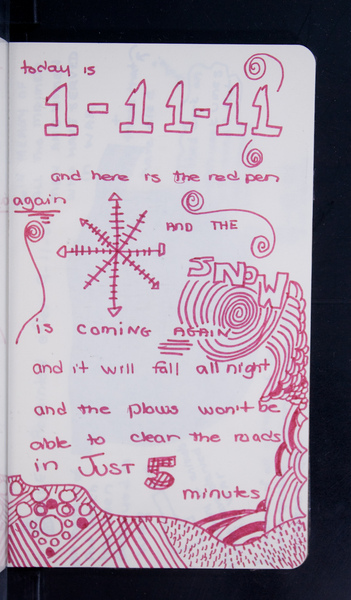 today is
1-11-11
and here is the red pen
again
AND THE
SNOW
is coming AGAIN
and it will fall all night
and the plows won't be
able to clear the roads
in JUST 5
minutes